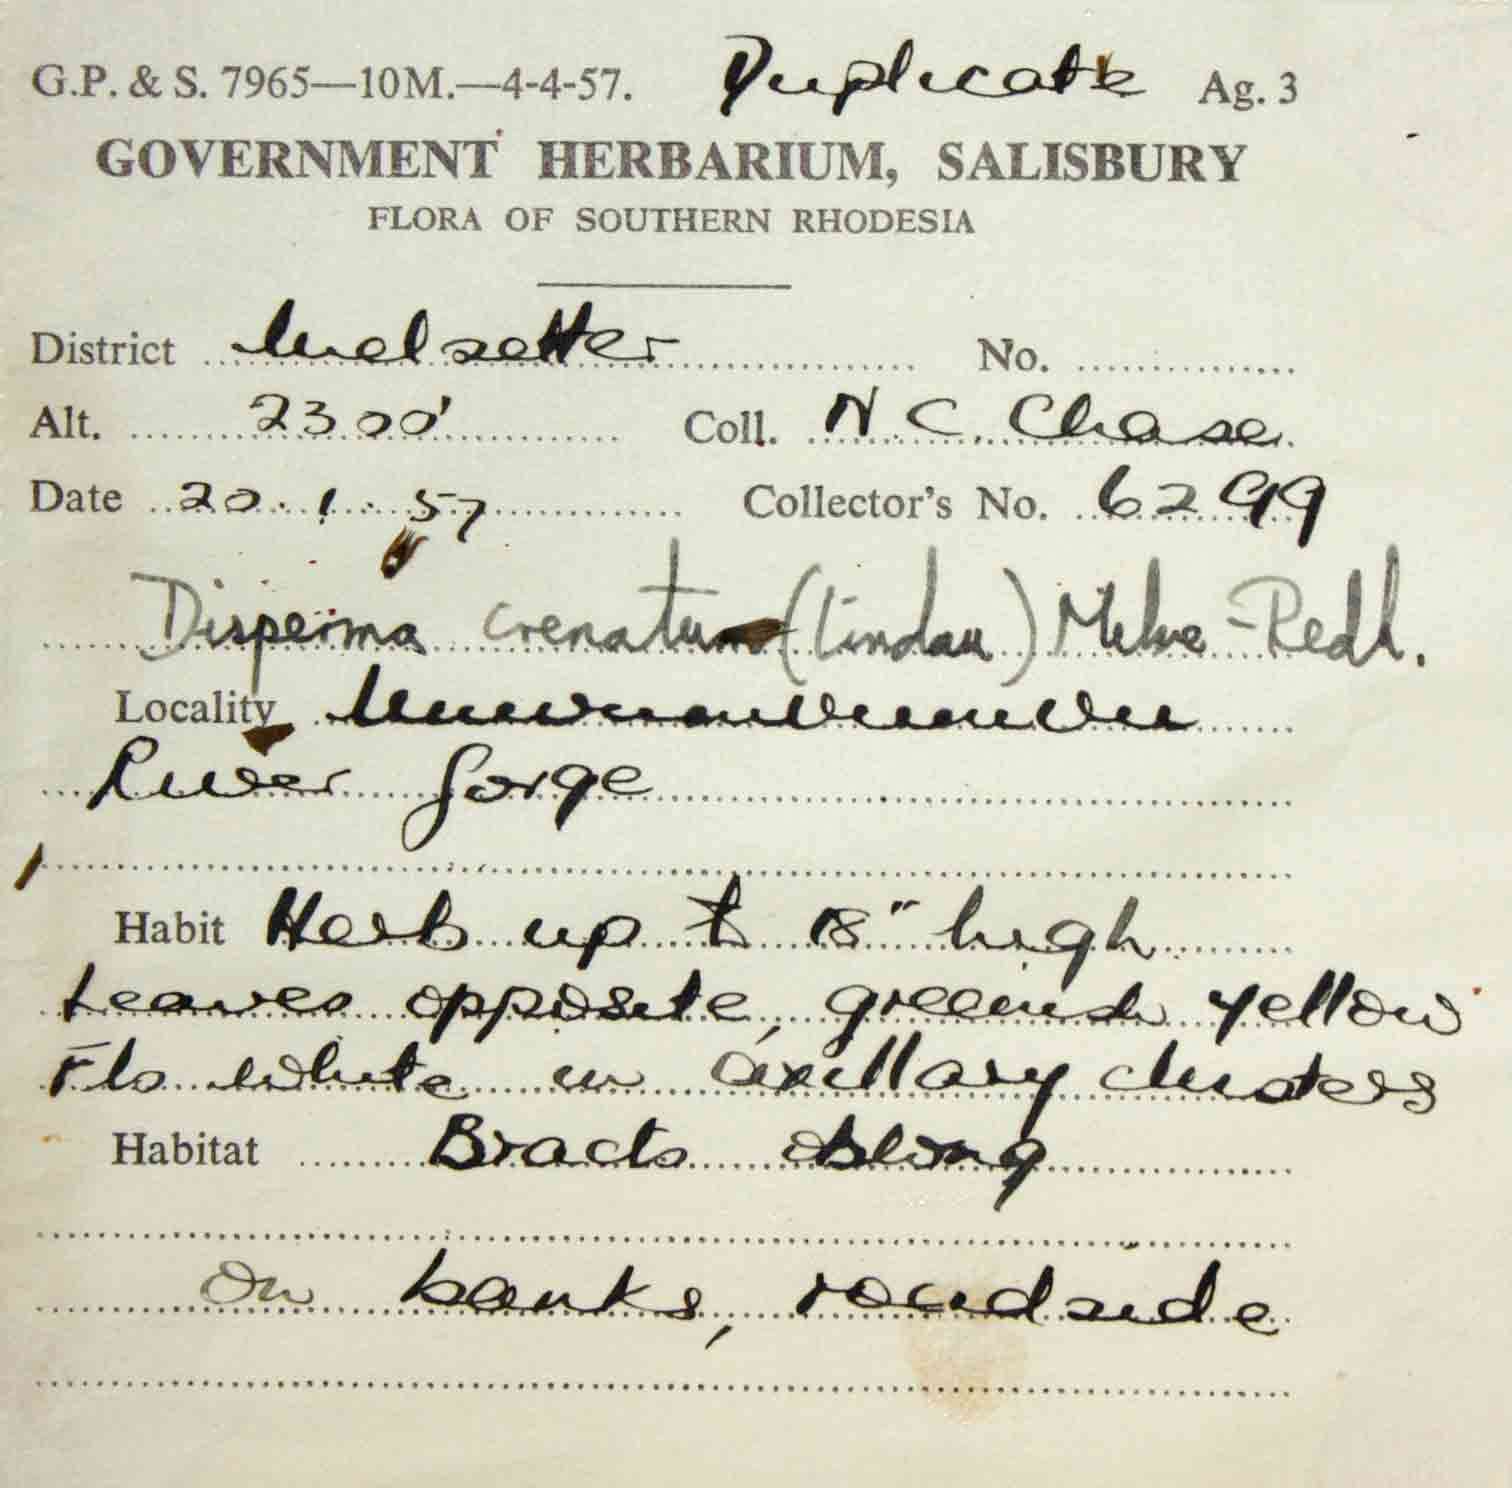 G.P. & S. 7965—10M.—4-4-57. Duplicate Ag. 3
GOVERNMENT HERBARIUM, SALISBURY
FLORA OF SOUTHERN RHODESIA
District Melsetter No.
Alt. 2300' Coll. N C Chase
Date 20.1.57 Collector's No. 6299
Disperma crenatum (Lindau) Milne-Redh.
Locality Umvumvumvu
River Gorge
Habit Herb up to 18" high
Leaves opposite, greenish yellow
Fls white in axillary clusters
Habitat Bracts oblong
On banks, roadside